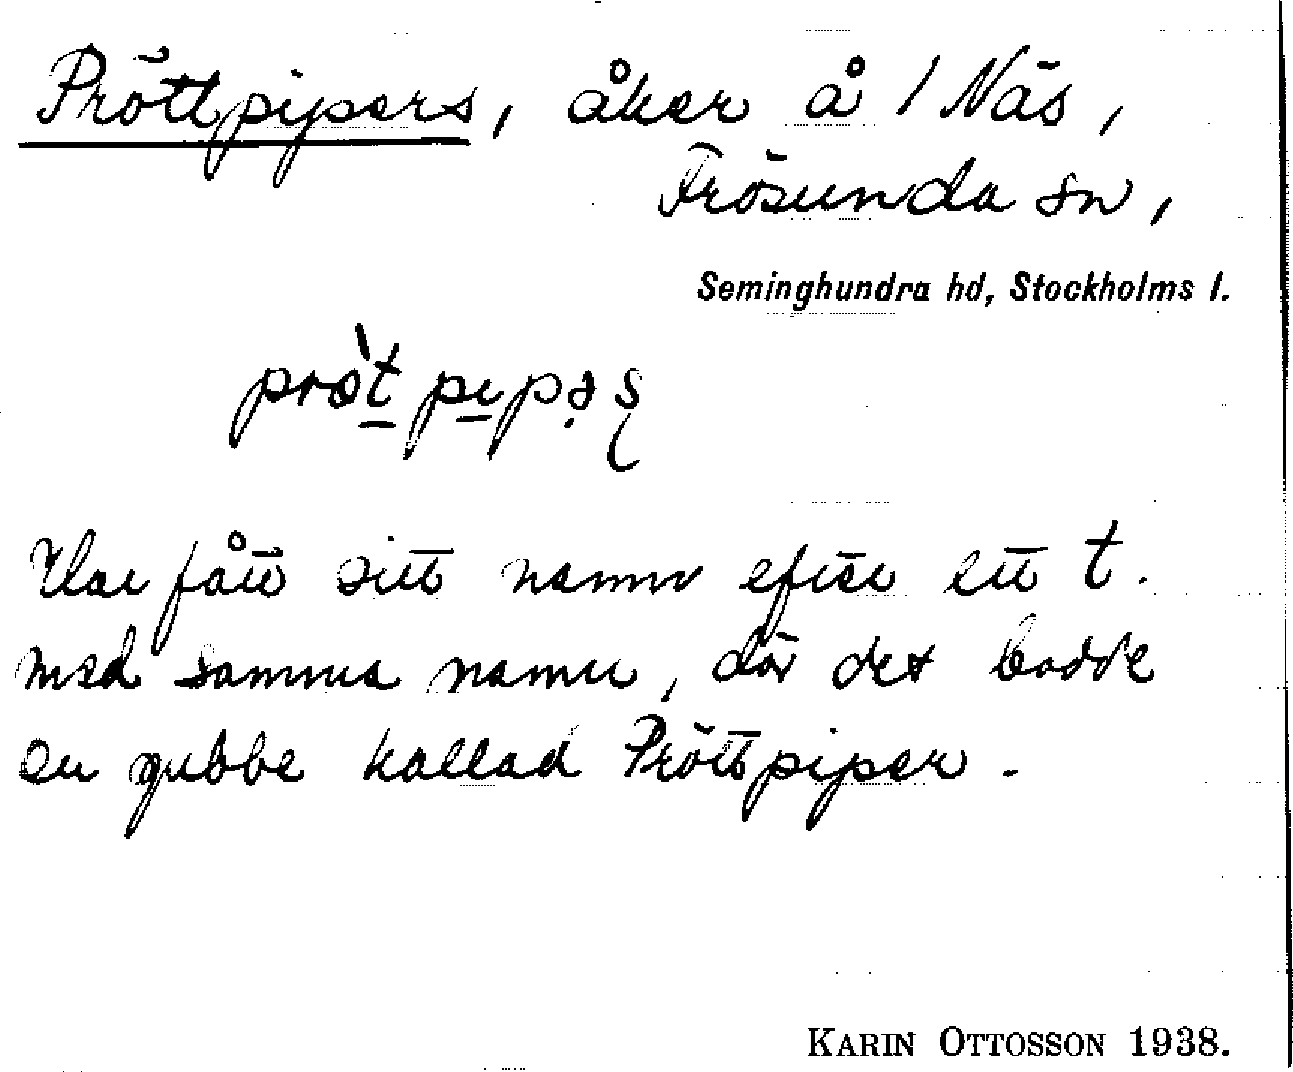 Pröttpipers, åker å 1 Näs,
Frösunda sn,
Seminghundra hd, Stockholms l.
Har fått sitt namn efter ett t.
med samma namn, där det bodde
en gubbe kallad Pröttpiper.
KARIN OTTOSSON 1938.